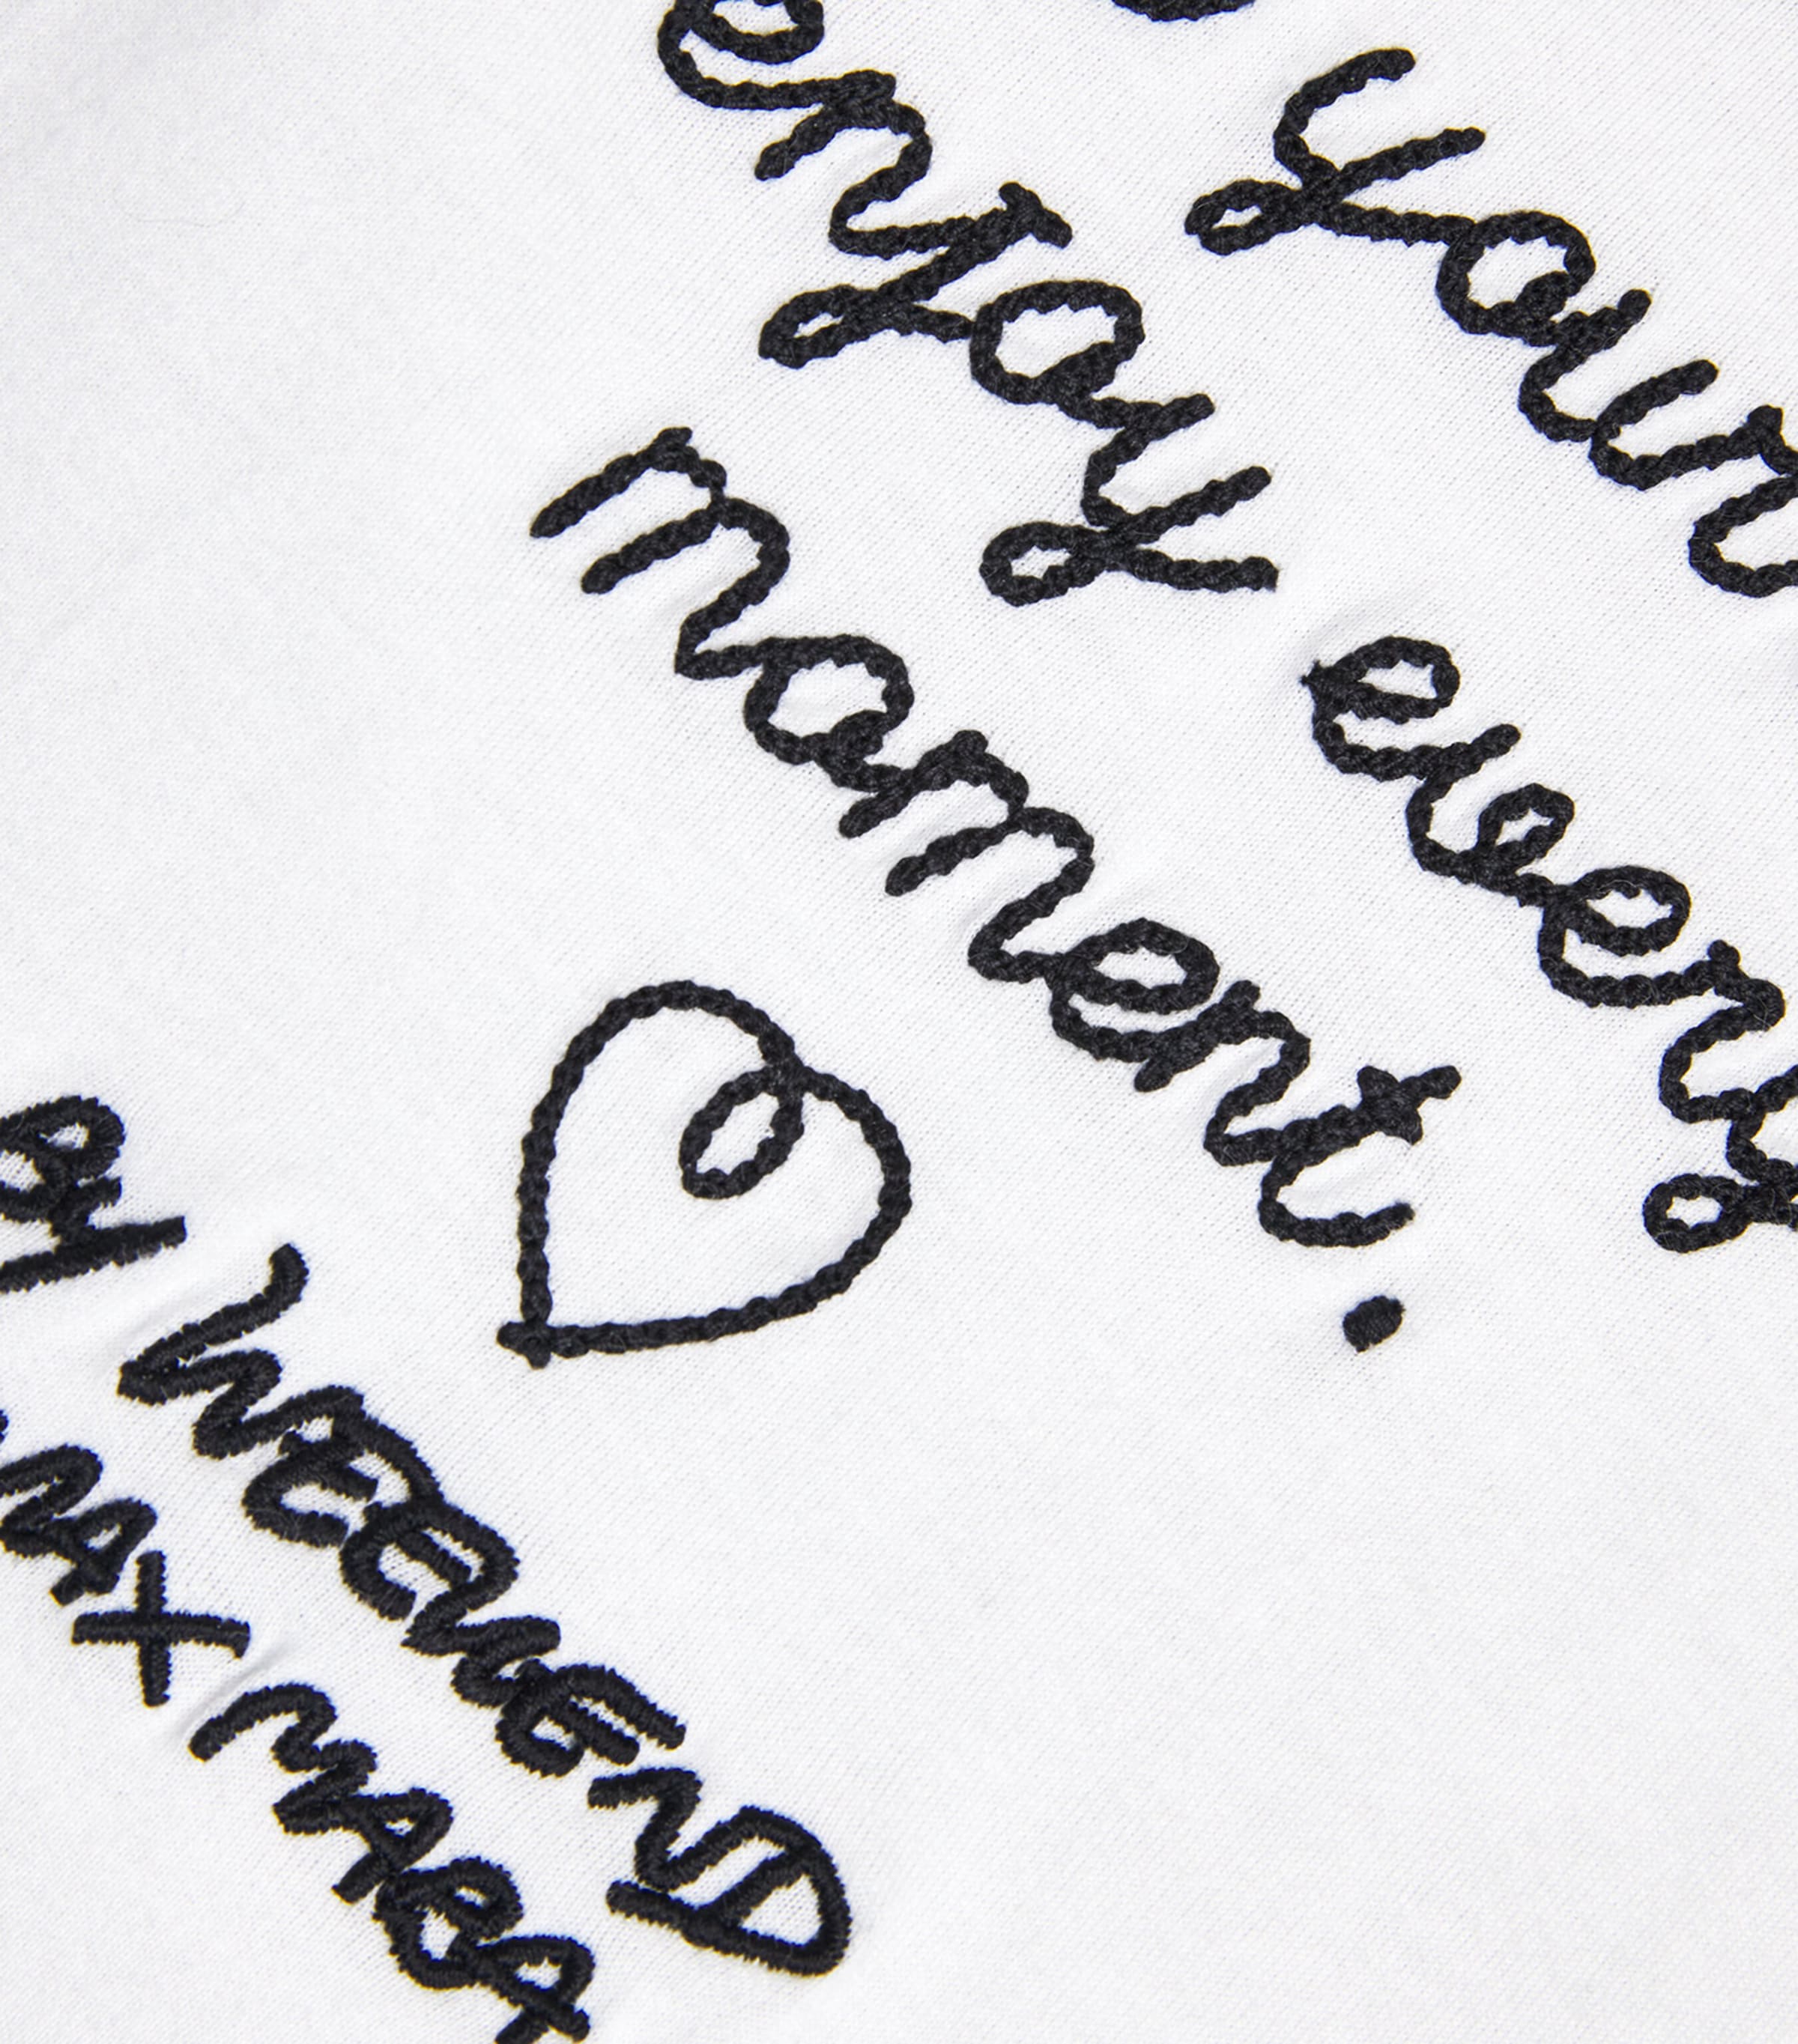 your
enjoy every
moment.
WEEKEND
MAX MARA